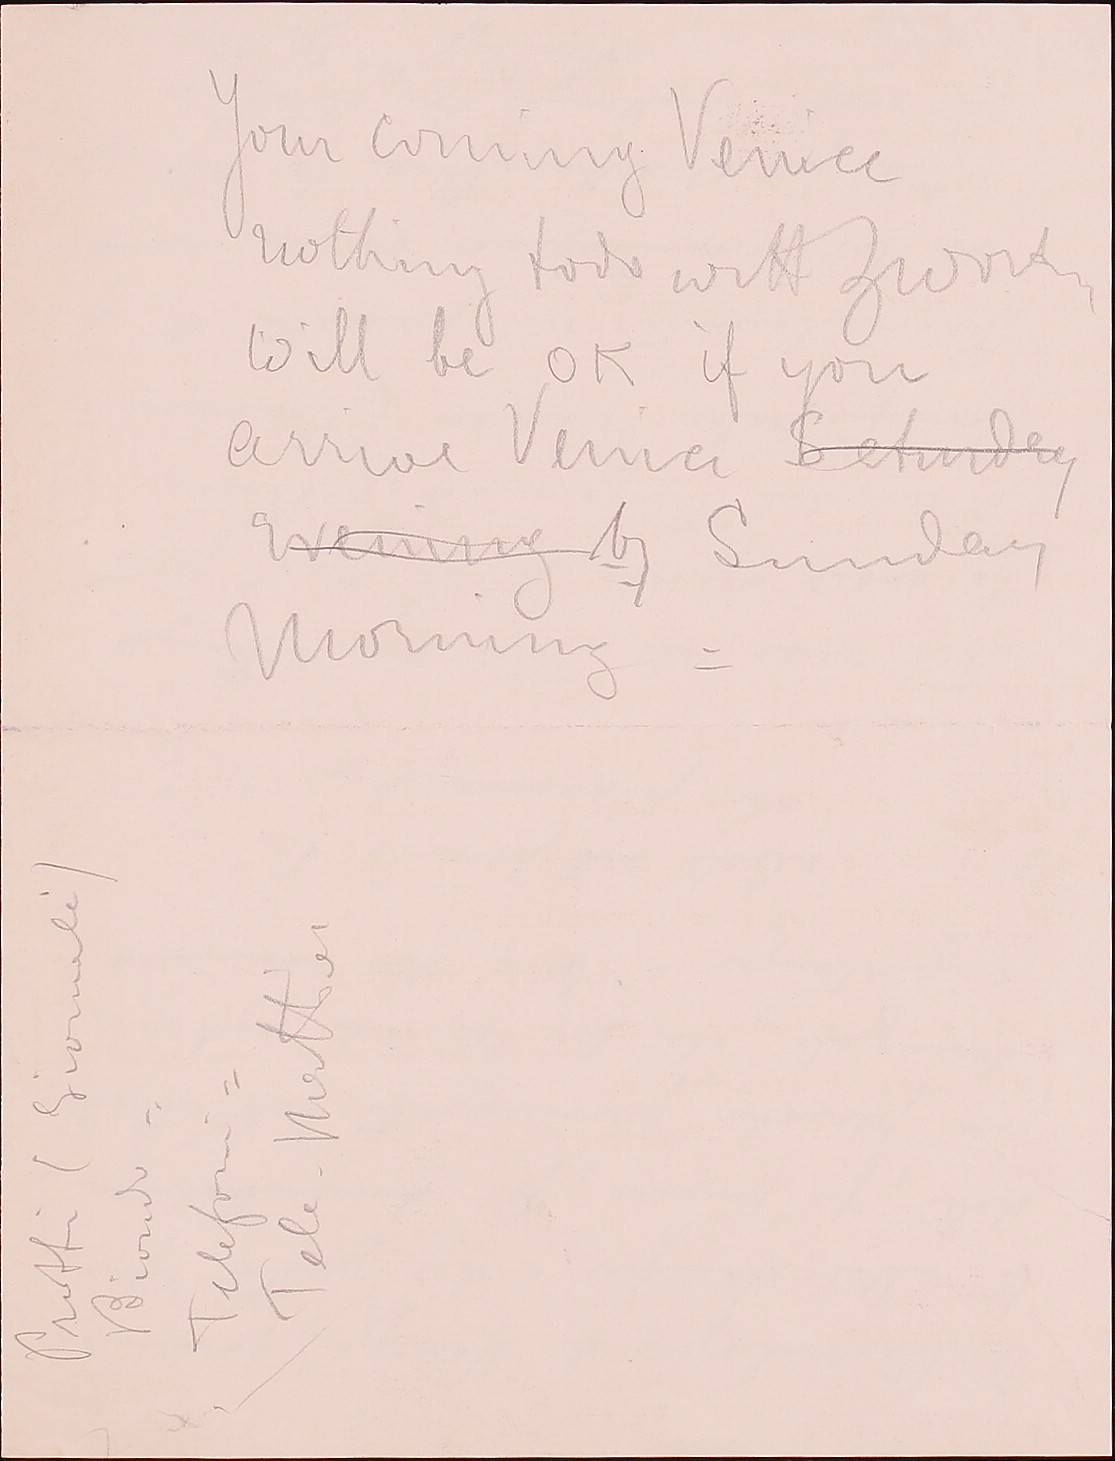 Your coming Venice
nothing to do with
will be OK if you
arrive Venice Saturday
evening by Sunday
Morning =
Pratti (Giornali)
Biondo =
Telefoni =
Tele -